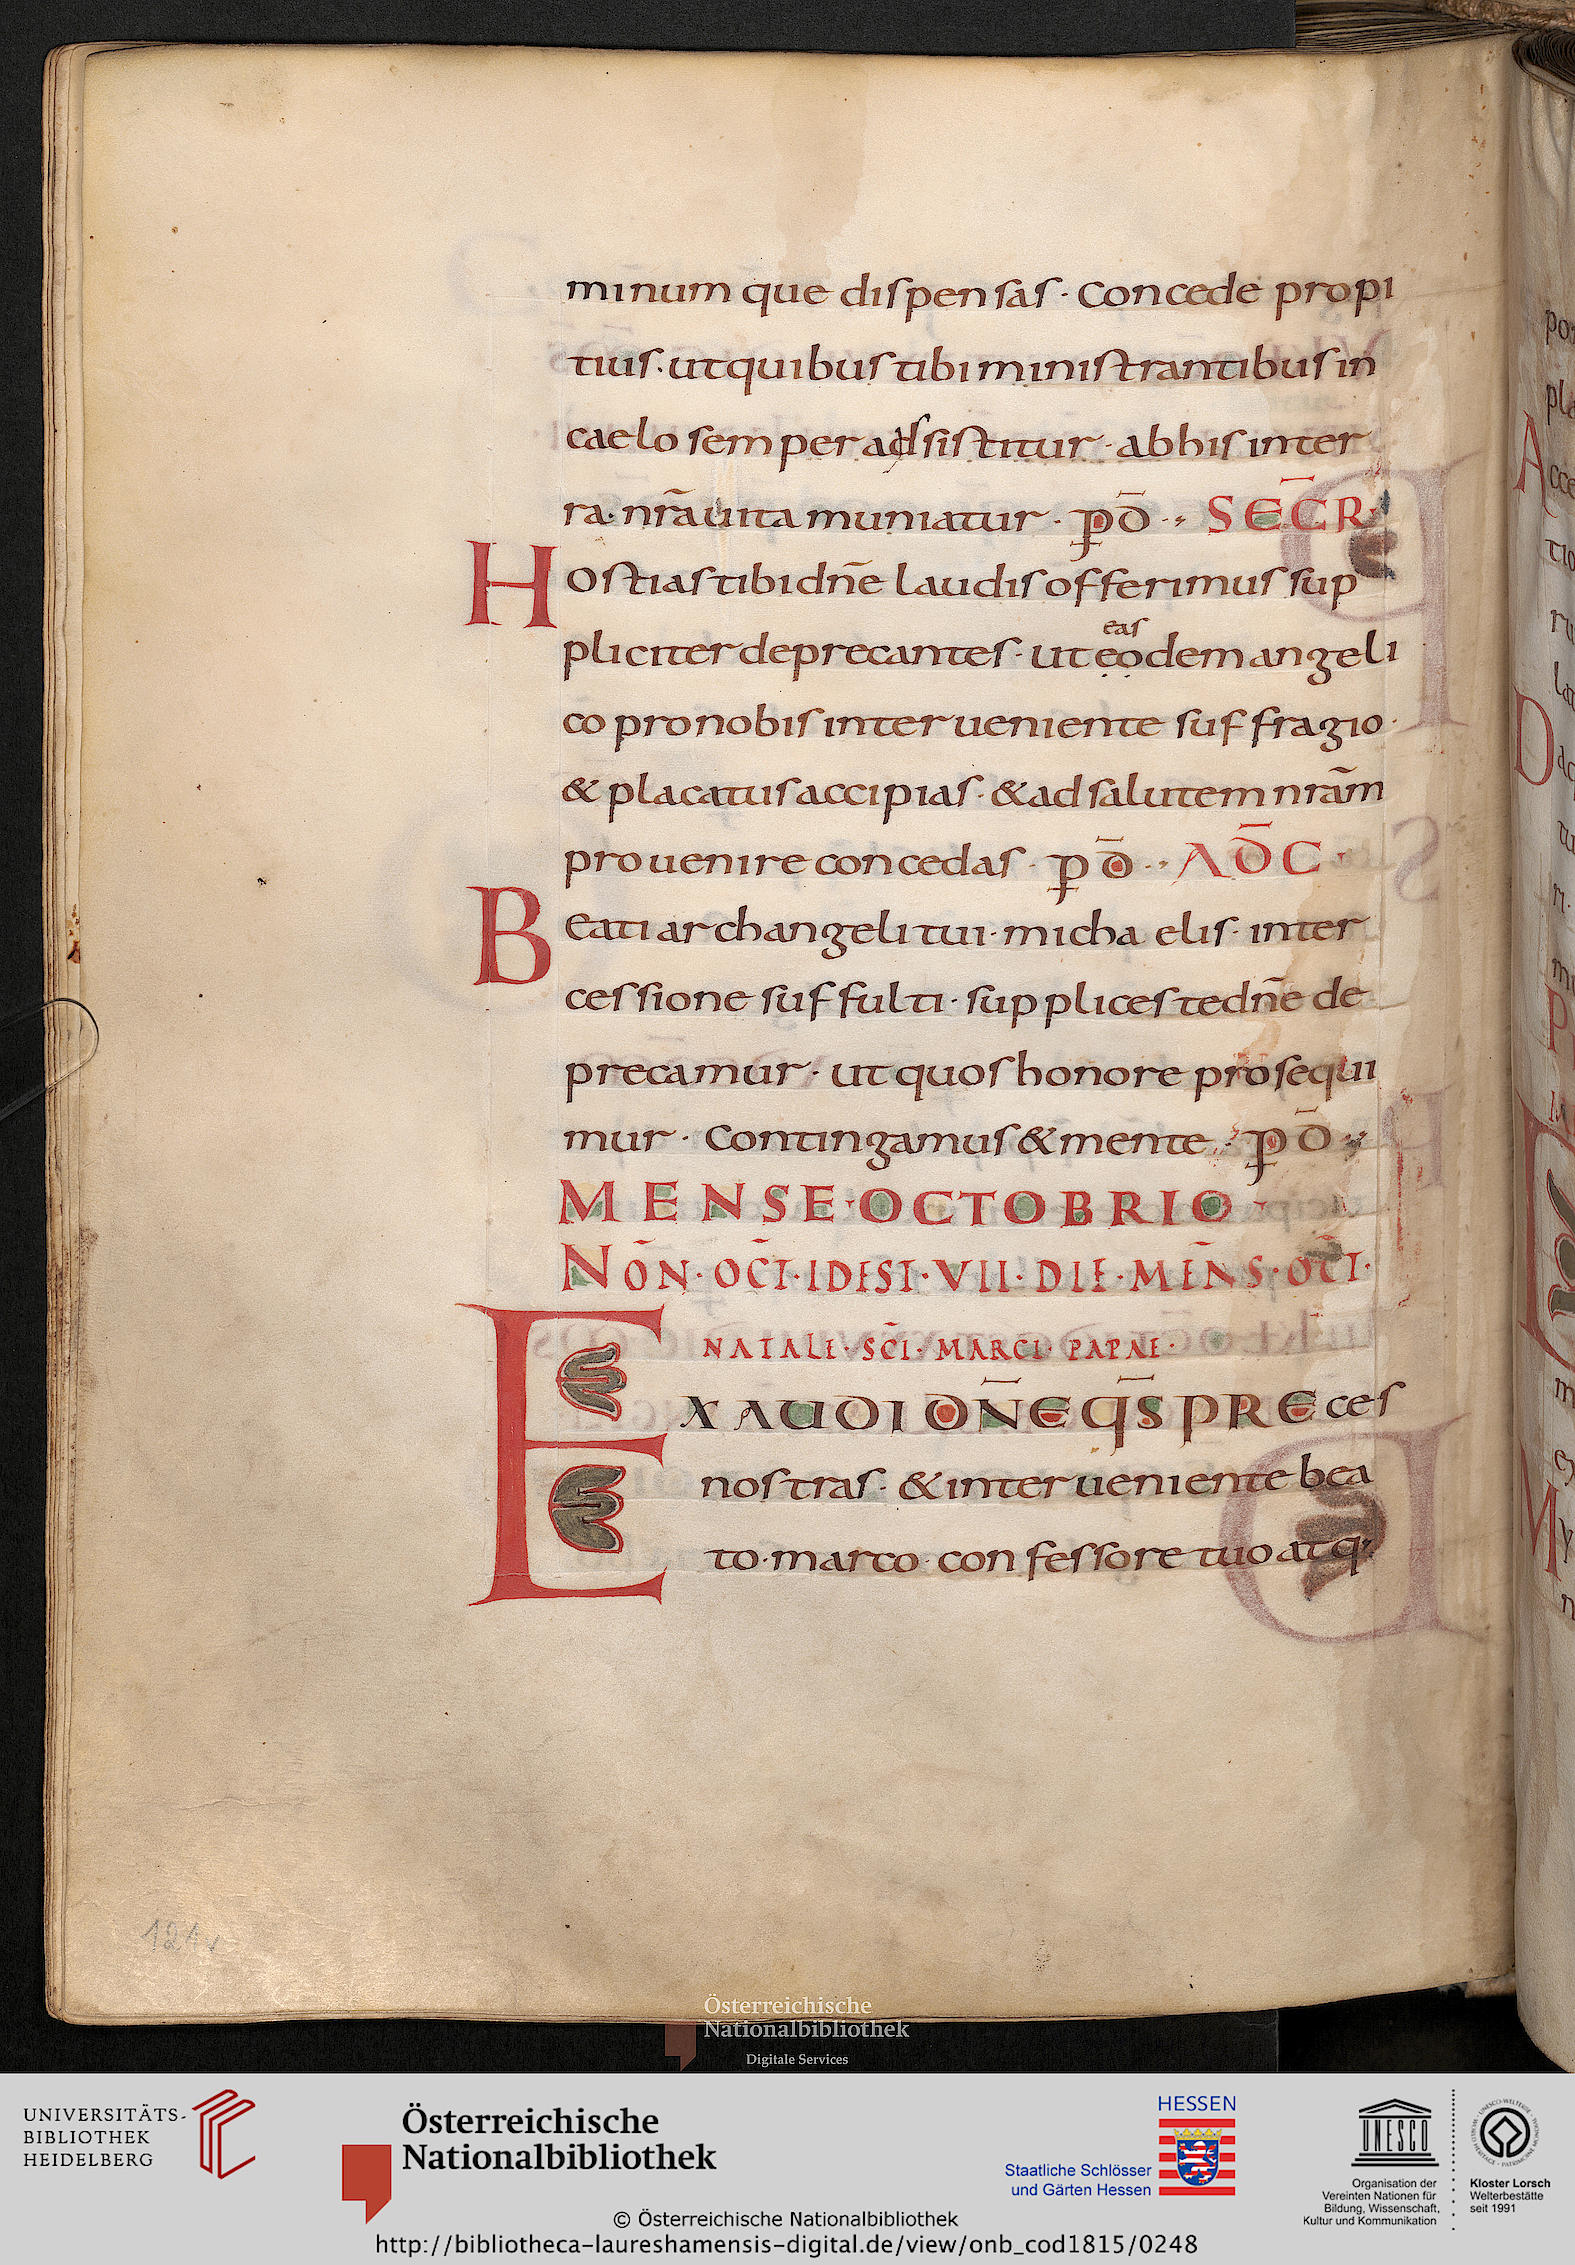 minum que dispensas · Concede propi
tius · ut quibus tibi ministrantibus in
caelo semper adsistitur · ab his in ter
ra · nr̄a uita muniatur · p̄ d̄ · SEC̄R
Hostias tibi dn̄e laudis offerimus sup
pliciter deprecantes · ut eodem angeli
eas
co pro nobis interueniente suffragio ·
& placatus accipias · & ad salutem nr̄am
prouenire concedas · p̄ d̄ · AD̄C ·
Beati archangeli tui · michaelis · inter
cessione suffulti · supplices te dn̄e de
precamur · ut quos honore prosequi
mur · Contingamus & mente · p̄ d̄
MENSE · OCTOBRIO ·
NŌN · OC̄T · IDEST · VII · DIE · MEN̄S · OC̄T ·
NATALE · SC̄I · MARCI · PAPAE ·
EXAUDI DN̄E Q̄S PRECes
nostras · & interueniente bea
to · marco · confessore tuo atq·
124v
Österreichische
Nationalbibliothek
Digitale Services
UNIVERSITÄTS-
BIBLIOTHEK
HEIDELBERG
Österreichische
Nationalbibliothek
HESSEN
Staatliche Schlösser
und Gärten Hessen
UNESCO
Organisation der
Vereinten Nationen für
Bildung, Wissenschaft,
Kultur und Kommunikation
Kloster Lorsch
Welterbestätte
seit 1991
© Österreichische Nationalbibliothek
http://bibliotheca-laureshamensis-digital.de/view/onb_cod1815/0248